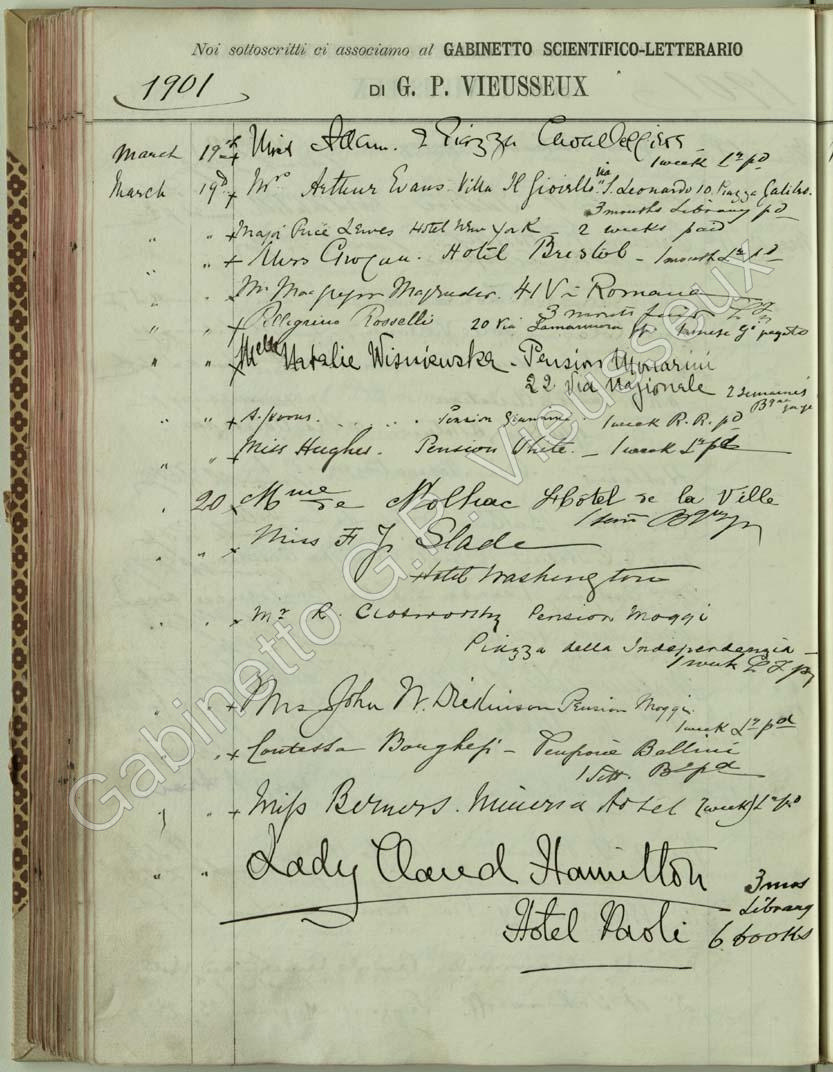 Noi sottoscritti ci associamo al GABINETTO SCIENTIFICO-LETTERARIO
1901
DI G. P. VIEUSSEUX
March 19th Miss Adam. 2 Piazza Cavalleggieri
1 week Lre pd
March 19 Mrs Arthur Evans. Villa Il Gioiello via S. Leonardo 10, Piazza Galileo.
3 months Library pd
" " Major Price Lewes Hotel New York - 2 weeks paid
" " Miss Grogan. Hotel Bristol - 1 month Lre pd
" " Mr Macgregor Magruder. 41 Via Romana
3 months
" " Pellegrino Rosselli 20 Via Lamarmora pagato
" " Melle Natalie Wisniewska - Pension Monarini
22 Via Nazionale 2 semaines
" " Pension 1 week R. R. pd
" " Miss Hughes. Pension White. - 1 week Lre pd
" 20 Mme de Nolhac Hôtel de la Ville
" " Miss F J Slade
Hotel Washington
" " Mr R. Clotworthy Pension Moggi
Piazza della Independenzia -
1 week
" " Mrs John W. Dickinson Pension Moggi.
1 week Lre pd
" " Contessa Borghesi - Pensione Bellini
1 Sett. pd
" " Miss Berners. Minerva Hotel (week) Lre pd
" " Lady Claud Hamilton
3 mos
Library
Hotel Paoli 6 books
Gabinetto G.P. Vieusseux